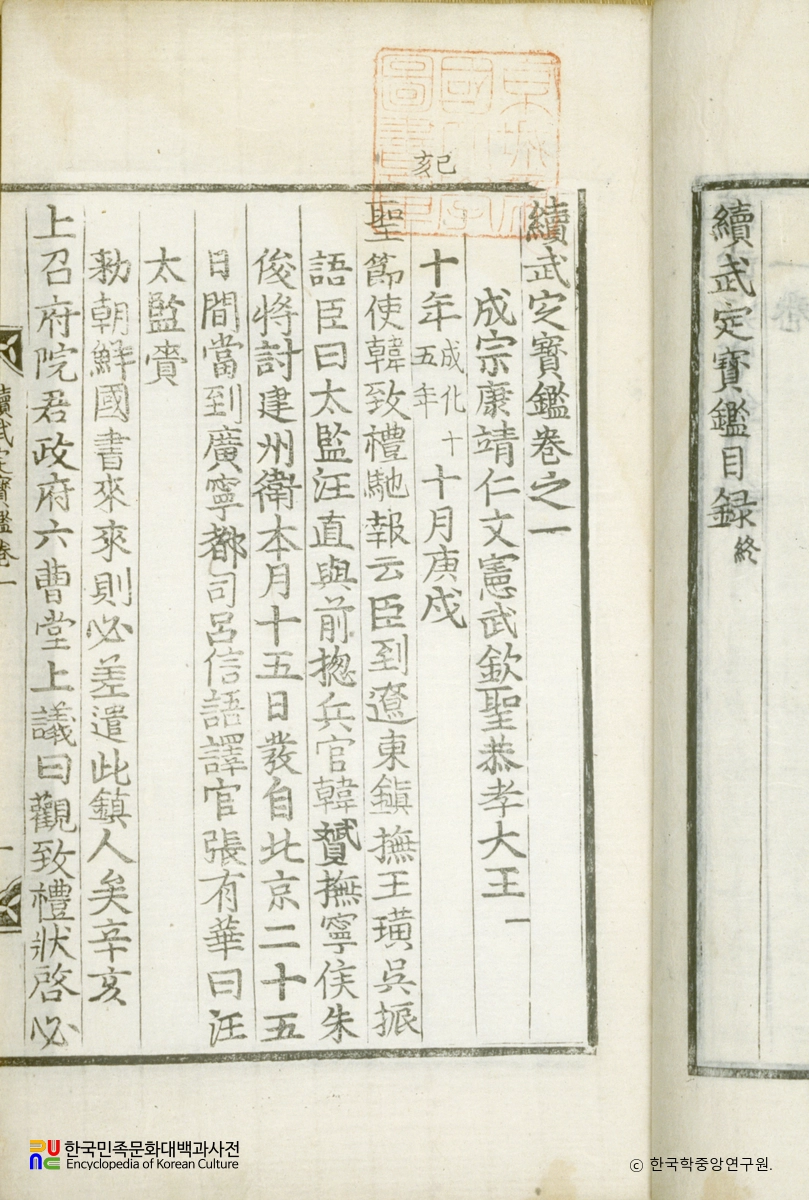 續武定寶鑑目録 終
續武定寶鑑卷之一
成宗康靖仁文憲武欽聖恭孝大王 一
十年 成化十五年 十月庚戌
聖節使韓致禮馳報云臣到遼東鎭撫王璜吳振
語臣曰太監汪直與前摠兵官韓贇撫寧侯朱
俊將討建州衛本月十五日發自北京二十五
日間當到廣寧都司呂信語譯官張有華曰汪
太監賫
勑朝鮮國書來來則必差遣此鎭人矣辛亥
上召府院君政府六曹堂上議曰觀致禮狀啓必
續武定寶鑑卷一
一
己亥
한국민족문화대백과사전
Encyclopedia of Korean Culture
ⓒ 한국학중앙연구원.